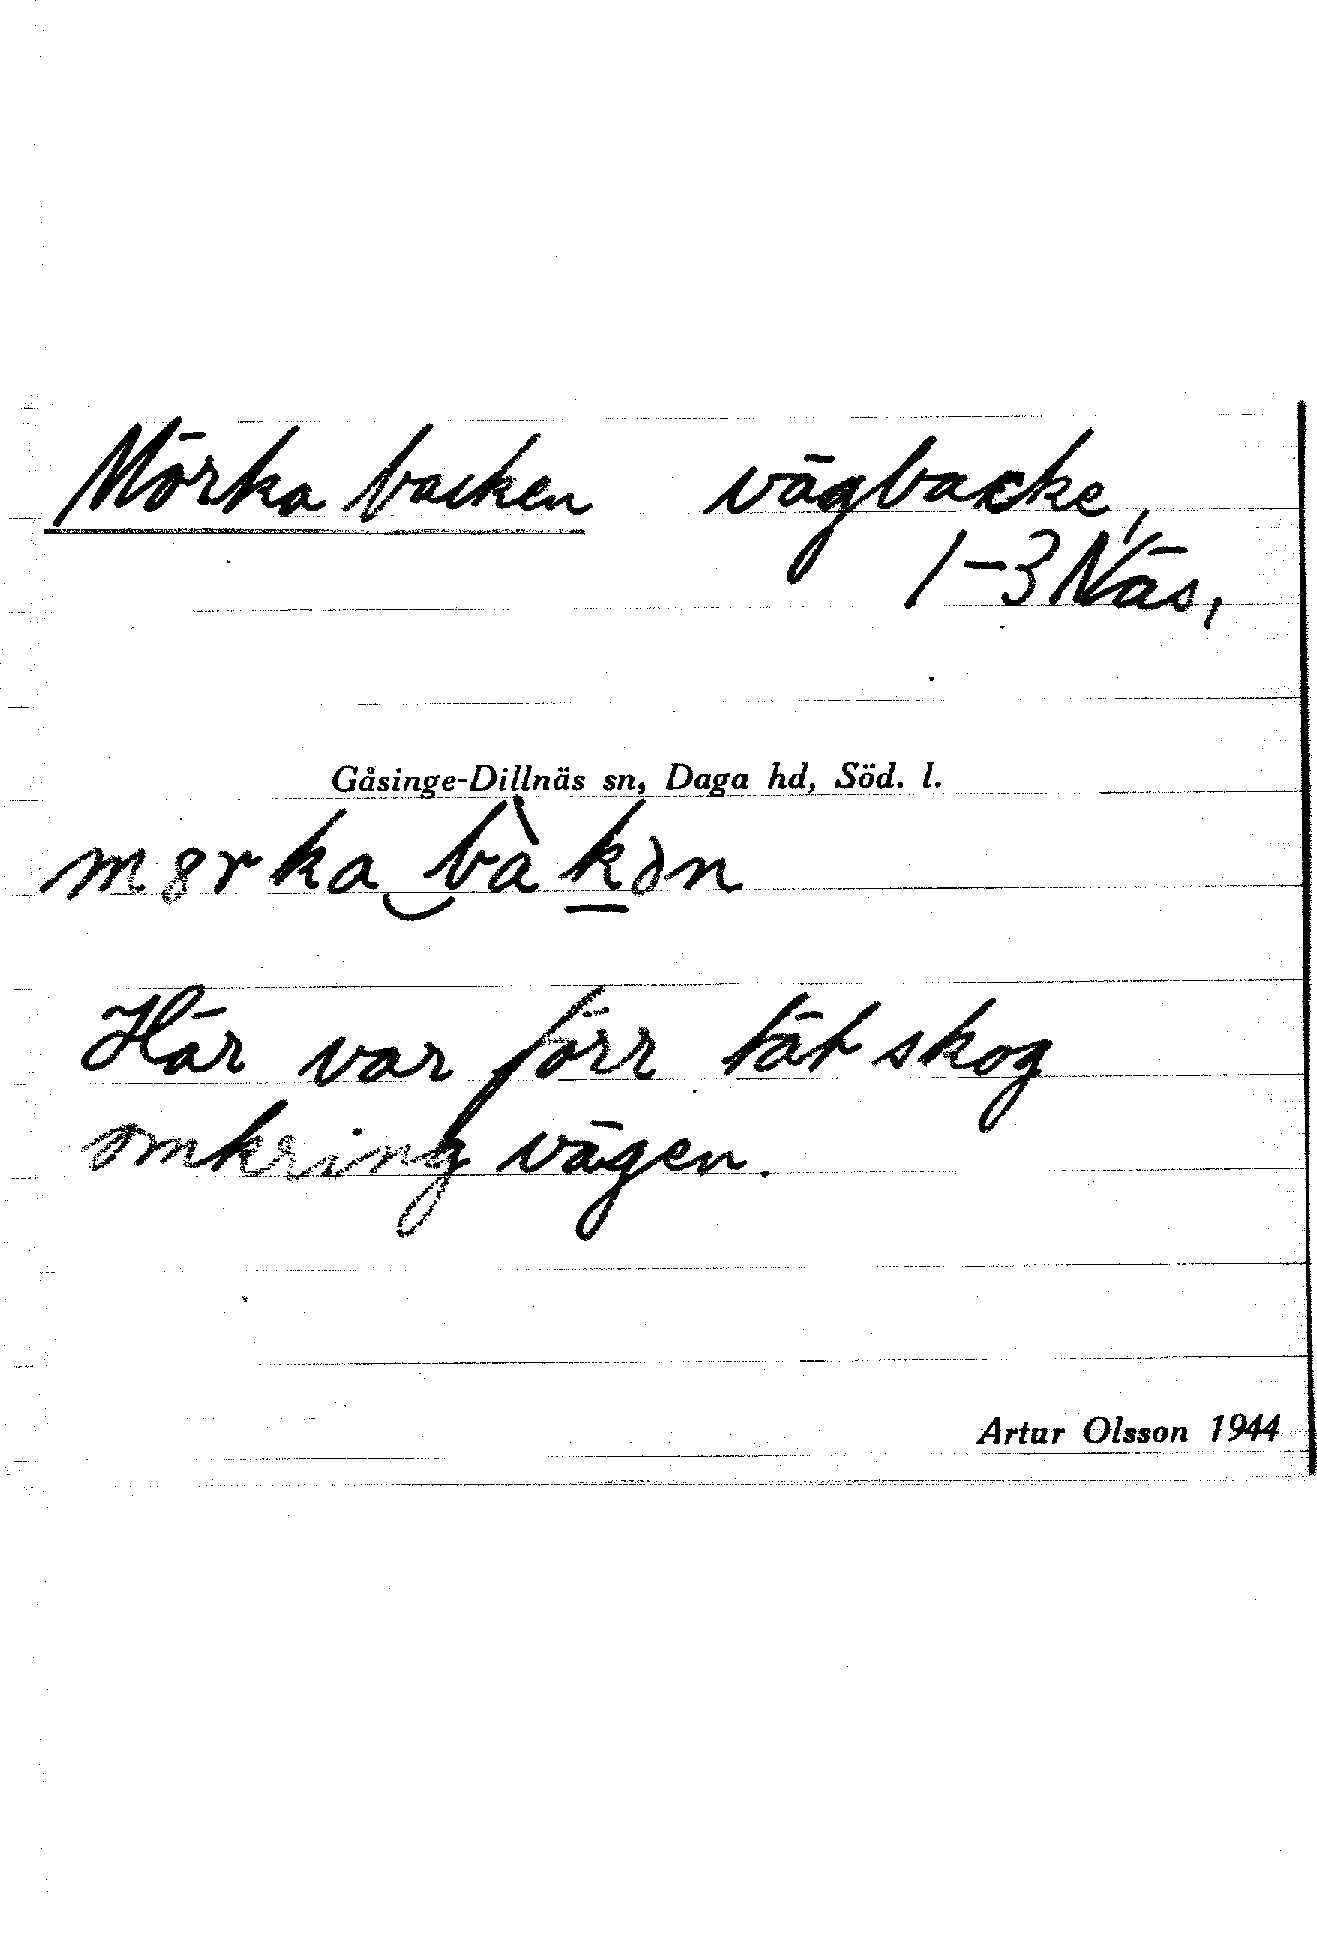 Mörka backen vägbacke,
1-3 Näs,
Gåsinge-Dillnäs sn, Daga hd, Söd. l.
m8rka‿bàk̲ən
Här var förr tät skog
omkring vägen.
Artur Olsson 1944